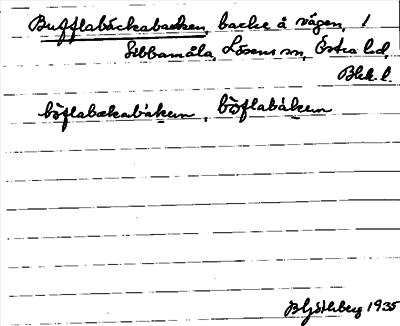 Bufflabäckabacken, backe å vägen, 1
Sebbamåla, Lösens sn, Östra hd,
Blek. l.
böflabækabaken, böflabaken
B Göthberg 1935